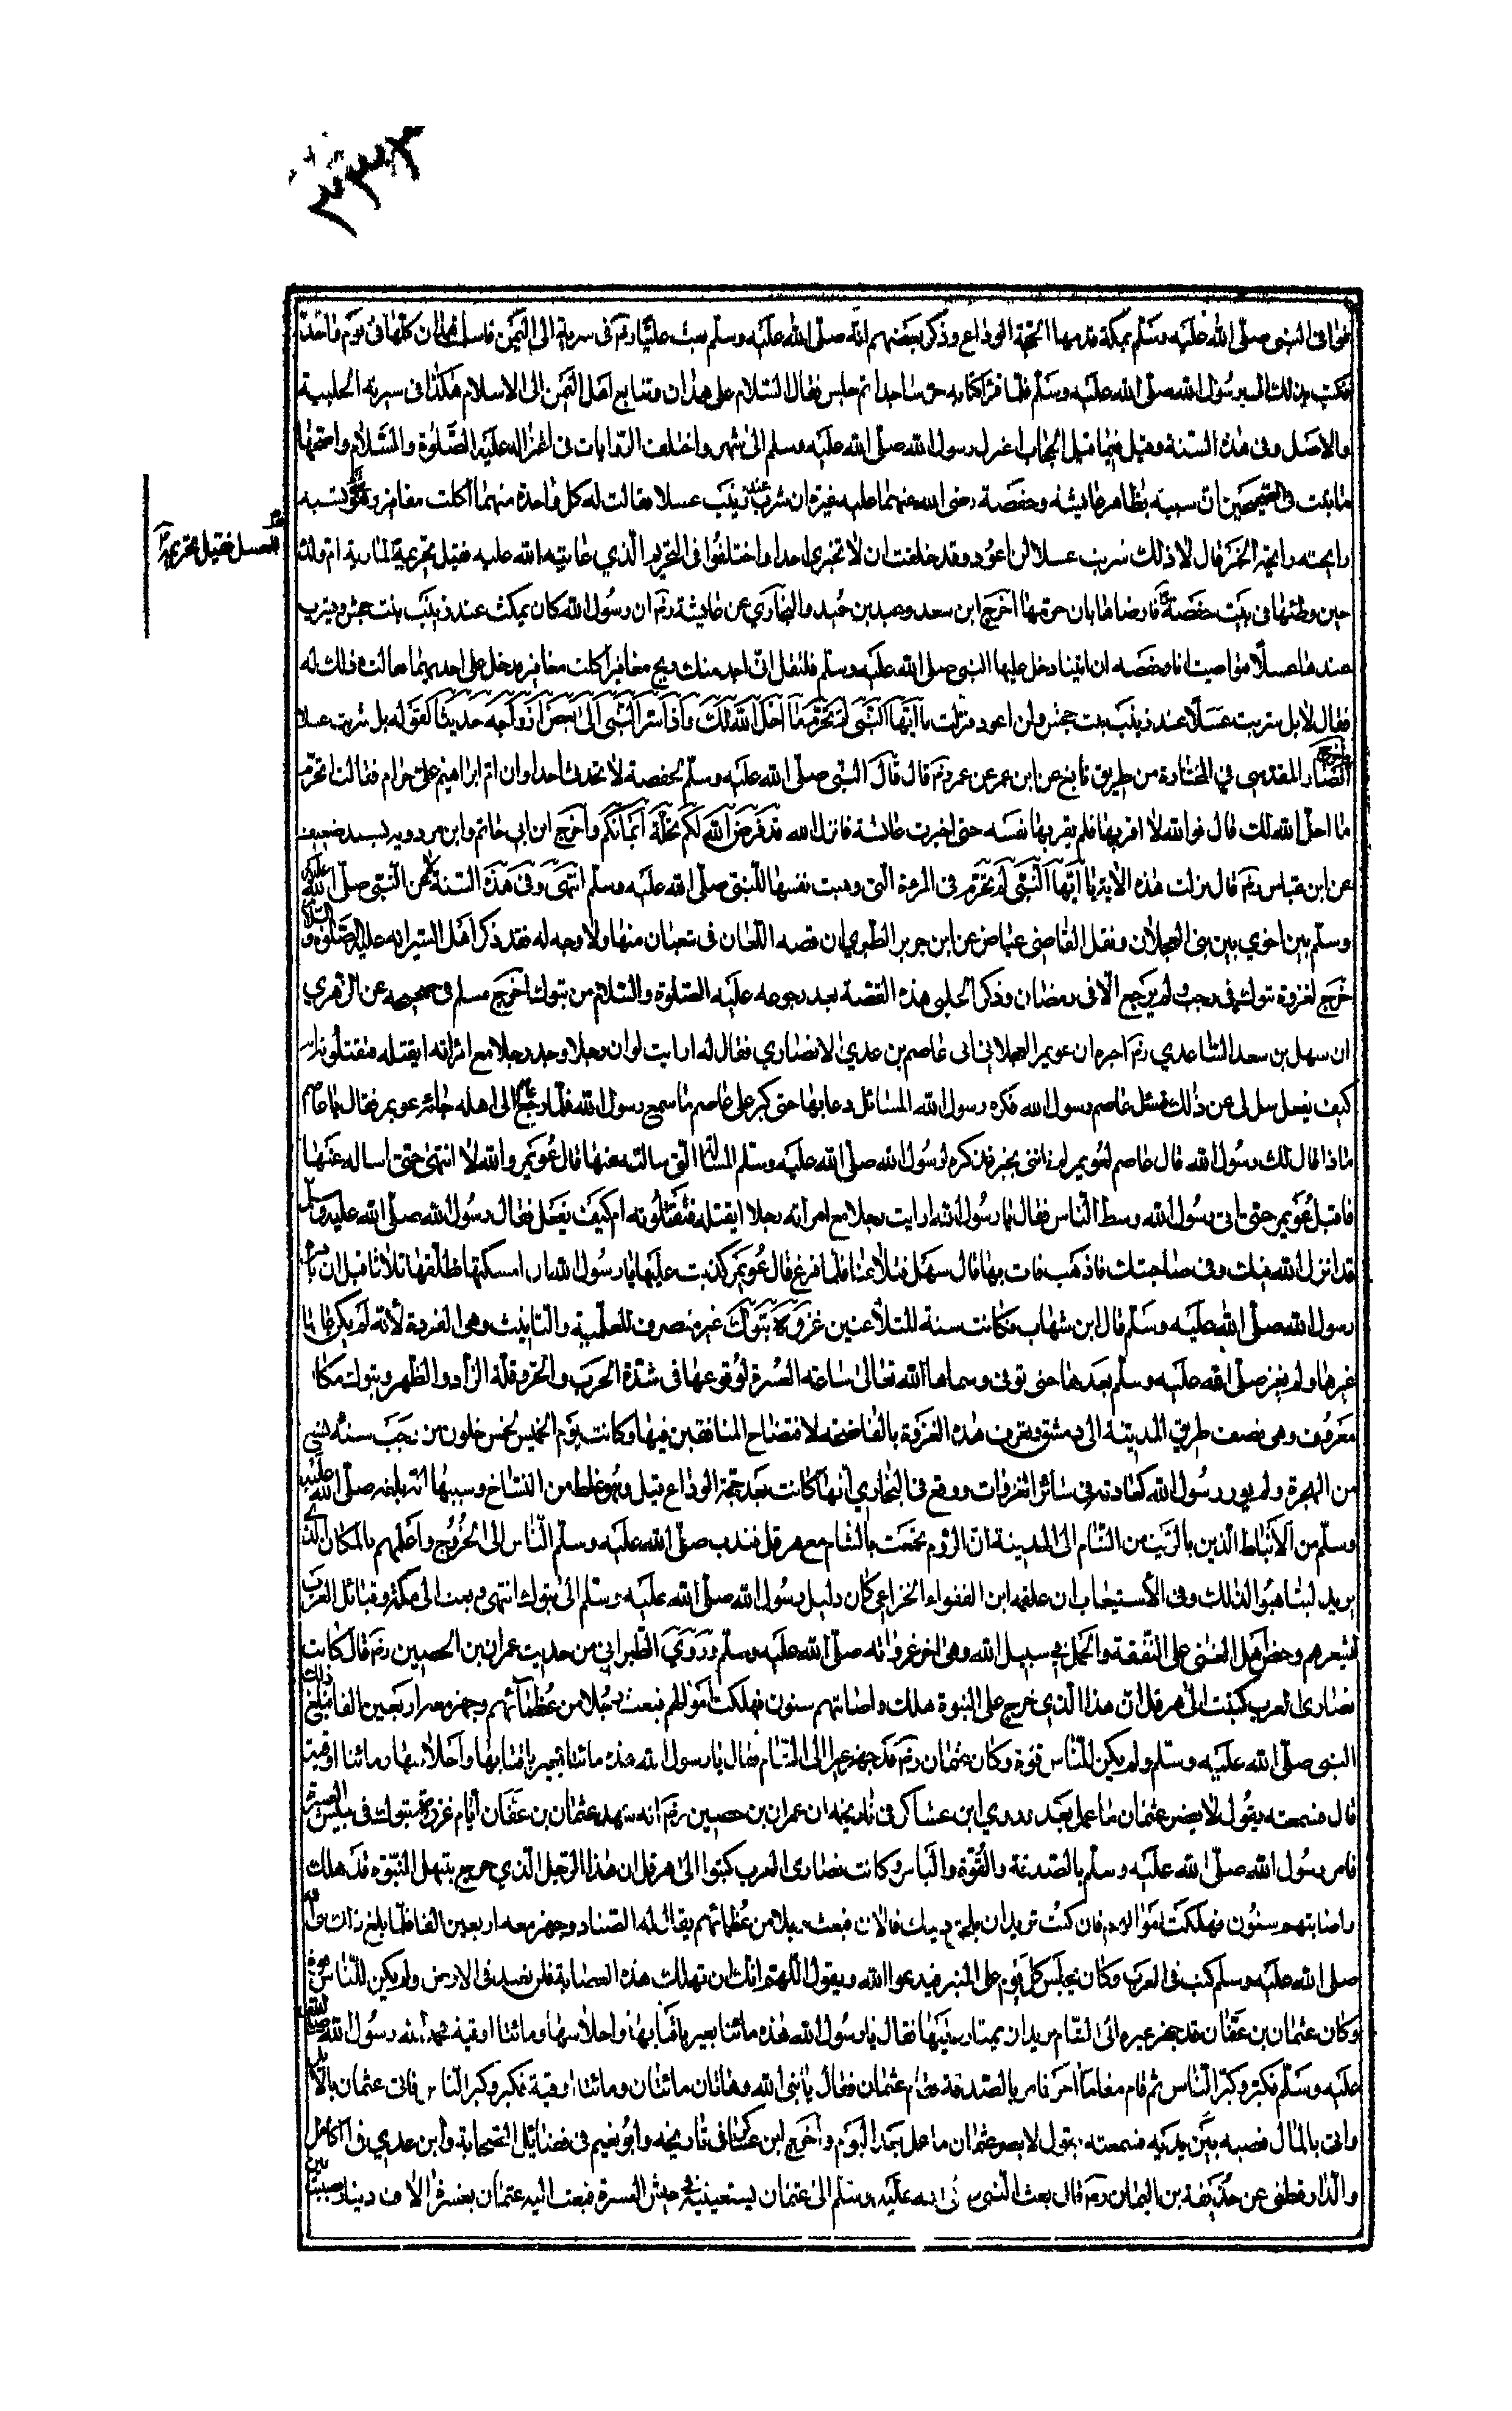 فوافى النبي صلّى الله عليه وسلّم بمكة قدمها الحجة الوداع وذكر بعضهم انه صلّى الله عليه وسلّم بعث عليّا رضي في سرية الى اليمن فاسلمت همدان كلها في يوم واحد
فكتب بذلك الى رسول الله صلى الله عليه وسلّم فلما قرأ كتابه خر ساجدا ثم جلس فقال السلام على همدان وتتابع اهل اليمن الى الاسلام هكذا في سيرته الحلبية
والاصل وفي هذه السنة وقيل فيما قبل الحجاب اعتزل رسول الله صلّى الله عليه وسلم الى شهر واختلفت الروايات في اعتزاله عليه الصّلوة والسّلام واصحها
ما ثبت في الصحيحين ان سببه تظاهر عايشه وحفصة رضي الله عنهما عليه غيرة ان شرب عند زينب عسلا فقالت له كل واحدة منهما اكلت مغافير وهو يشبه
رايحته رايحة الخمر قال لا ذلك شرب عسلا لن اعود وقد حلفت ان لا تخبري احدا واختلفوا في التحريم الذي عاتبه الله عليه فقيل تحريمه المارية ام ولده
العسل فقيل تحريمه
حين وطئها في بيت حفصة فارضاها بان حرمها اخرج ابن سعد وعبد بن حميد والبخاري عن عايشة رضي ان رسول الله كان يمكث عند زينب بنت جحش ويشرب
عندها عسلا فتواصيت انا وحفصه ان ايتنا دخل عليها النبي صلى الله عليه وسلّم فلتقل اني اجد منك ريح مغافير اكلت مغافير فدخل على احديهما فقالت ذلك له
فقال لا بل شربت عسلا عند زينب بنت جحش ولن اعود فنزلت يا ايها النبي لم تحرم ما احل الله لك واذ اسر النبي الى بعض ازواجه حديثا لقوله بل شربت عسلا
واخرج الضياء المقدسي في المختارة من طريق نافع عن ابن عمر عن عمر رضي قال قال النبي صلى الله عليه وسلّم لحفصة لا تحدث احدا وان ام ابراهيم علي حرام فقالت اتحرم
ما احل الله لك قال فوالله لا اقربها فلم يقربها نفسه حتى اخبرت عائشة فانزل الله قد فرض الله لكم تحلة ايمانكم واخرج ابن ابي حاتم وابن مردويه بسند ضعيف
عن ابن عباس رضي قال نزلت هذه الاية يا ايها النبي لم تحرم في المرءة التي وهبت نفسها للنبي صلى الله عليه وسلّم انتهى وفي هذه السنة لاعن النبي صلّى الله عليه
وسلّم بين اخوي بين بني العجلان ونقل القاضي عياض عن ابن جرير الطبري ان قصه اللعان في شعبان منها ولا وجه له فقد ذكر اهل السير انه عليه الصلوة والسلام
خرج لغزوة تبوك في رجب ولم يرجع الّا في رمضان وذكر الحلبي هذه القصة بعد رجوعه عليه الصلوة والسلام من تبوك اخرج مسلم في صحيحه عن الزهري
ان سهل بن سعد الساعدي رضي اخبره ان عويمر العجلاني اتى عاصم بن عدي الانصاري فقال له ارايت لو ان رجلا وجد رجلا مع امراته ايقتله فتقتلونه ام
كيف يفعل سل لي عن ذلك فسئل عاصم رسول الله فكره رسول الله المسائل وعابها حتى كبر على عاصم ما سمع رسول الله فلما رجع الى اهله جائه عويمر فقال يا عاصم
ماذا قال لك رسول الله قال عاصم لعويمر لم تاتني بخير قد كره رسول الله صلى الله عليه وسلّم المسألة التي سالته عنها قال عويمر والله لا انتهى حتى اساله عنها
فاقبل عويمر حتى اتى رسول الله وسط الناس فقال يا رسول الله ارايت رجلا مع امراته رجلا ايقتله فتقتلونه ام كيف يفعل فقال رسول الله صلى الله عليه وسلم
قد انزل الله فيك وفي صاحبتك فاذهب فات بها قال سهل فتلاعنا فلما فرغ قال عويمر كذبت عليها يا رسول الله ان امسكتها فطلّقها ثلاثا قبل ان يامره
رسول الله صلى الله عليه وسلّم قال ابن شهاب فكانت سنة المتلاعنين غزوة تبوك غير منصرف للعلمية والتانيث وهي الفردة لأنه لم يكن عامها
غيرها ولم يغز صلّى الله عليه وسلّم بعدها حتى توفى وسماها الله تعالى ساعة العسرة لوقوعها في شدّة الحرب والحر وقلة الزاد والظهر وتبوك مكان
معروف وهي نصف طريق المدينة الى دمشق وتعرف هذه الغزوة بالفاضحه لافتضاح المنافقين فيها وكانت يوم الخميس لخمس خلون من رجب سنه تسع
من الهجرة ولم يور رسول الله كعادته في سائر الغزوات ووقع في البخاري انها كانت بعد حجة الوداع قيل وهو غلط من النساخ وسببها انه بلغه صلّى الله عليه
وسلّم من الانباط الذين بالزيت من الشام الى المدينة ان الروم تجمعت بالشام مع هرقل فندب صلّى الله عليه وسلّم النّاس الى الخروج واعلمهم بالمكان الذي
يريد ليتاهبوا لذلك وفي الاستيعاب ان علقمه ابن الفغواء الخزاعي كان دليل رسول الله صلّى الله عليه وسلّم الى تبوك انتهى وبعث الى مكة وقبائل العرب
فيستنفرهم وحض اهل الغنى على النفقة والحمل في سبيل الله وهي اخر غزواته صلّى الله عليه وسلّم وروي الطبراني من حديث عمران بن الحصين رضي قال كانت
نصارى العرب كتبت الى هرقل ان هذا الذي خرج على النبوة هلك واصابتهم سنون فهلكت اموالهم فبعث رجلا من عظمائهم وجهز معه اربعين الفا فبلغ ذلك
النبي صلّى الله عليه وسلّم ولم يكن للنّاس قوة وكان عثمان رضي قد جهز عيرا الى الشام فقال يا رسول الله هذه مائتا بعير باقتابها واحلاسها ومائتا اوقية
قال فسمعته يقول لا يضر عثمان ما عمل بعد وروي ابن عساكر في تاريخه ان عمران بن حصين رضي انه شهد عثمان بن عفان ايام غزوة تبوك في جيش العسرة
فامر رسول الله صلّى الله عليه وسلّم بالصدقة والقوة والباس وكانت نصارى العرب كتبوا الى هرقل ان هذا الرجل الذي خرج ينتحل النبوه قد هلك
واصابتهم سنون فهلكت اموالهم فان كنت تريد ان تلحق دينك فالان فبعث رجلا من عظمائهم يقال له الصناد وجهز معه اربعين الفا فلما بلغ ذلك النبي
صلى الله عليه وسلم كتب في العرب وكان يجلس كل يوم على المنبر فيدعو الله ويقول اللّهم انك ان تهلك هذه العصابة فلن تعبد في الارض ولم يكن للنّاس قوة
وكان عثمان بن عفان قد جهز عيره الى الشام يريد ان يمتار عليها فقال يا رسول الله هذه مائتا بعير باقتابها واحلاسها ومائتا اوقية فحمد الله رسول الله صلى الله
عليه وسلّم فكبّر وكبّر النّاس ثم قام مقاما اخر فامر بالصّدقة فقام عثمان فقال يا نبي الله وهاتان مائتان ومائتا اوقية فكبر وكبر النّاس فاتى عثمان بالابل
واتى بالمال فصبه بين يديه فسمعته يقول لا يضر عثمان ما عمل بعد اليوم واخرج ابن عساكر في تاريخه وابو نعيم في فضايل الصحابة وابن عدي في الكامل
والدارقطني عن حذيفة بن اليمان رضي قال بعث النبي صلى الله عليه وسلّم الى عثمان يستعينه في جيش العسرة فبعث اليه عثمان بعشرة الاف دينار فصبت بين